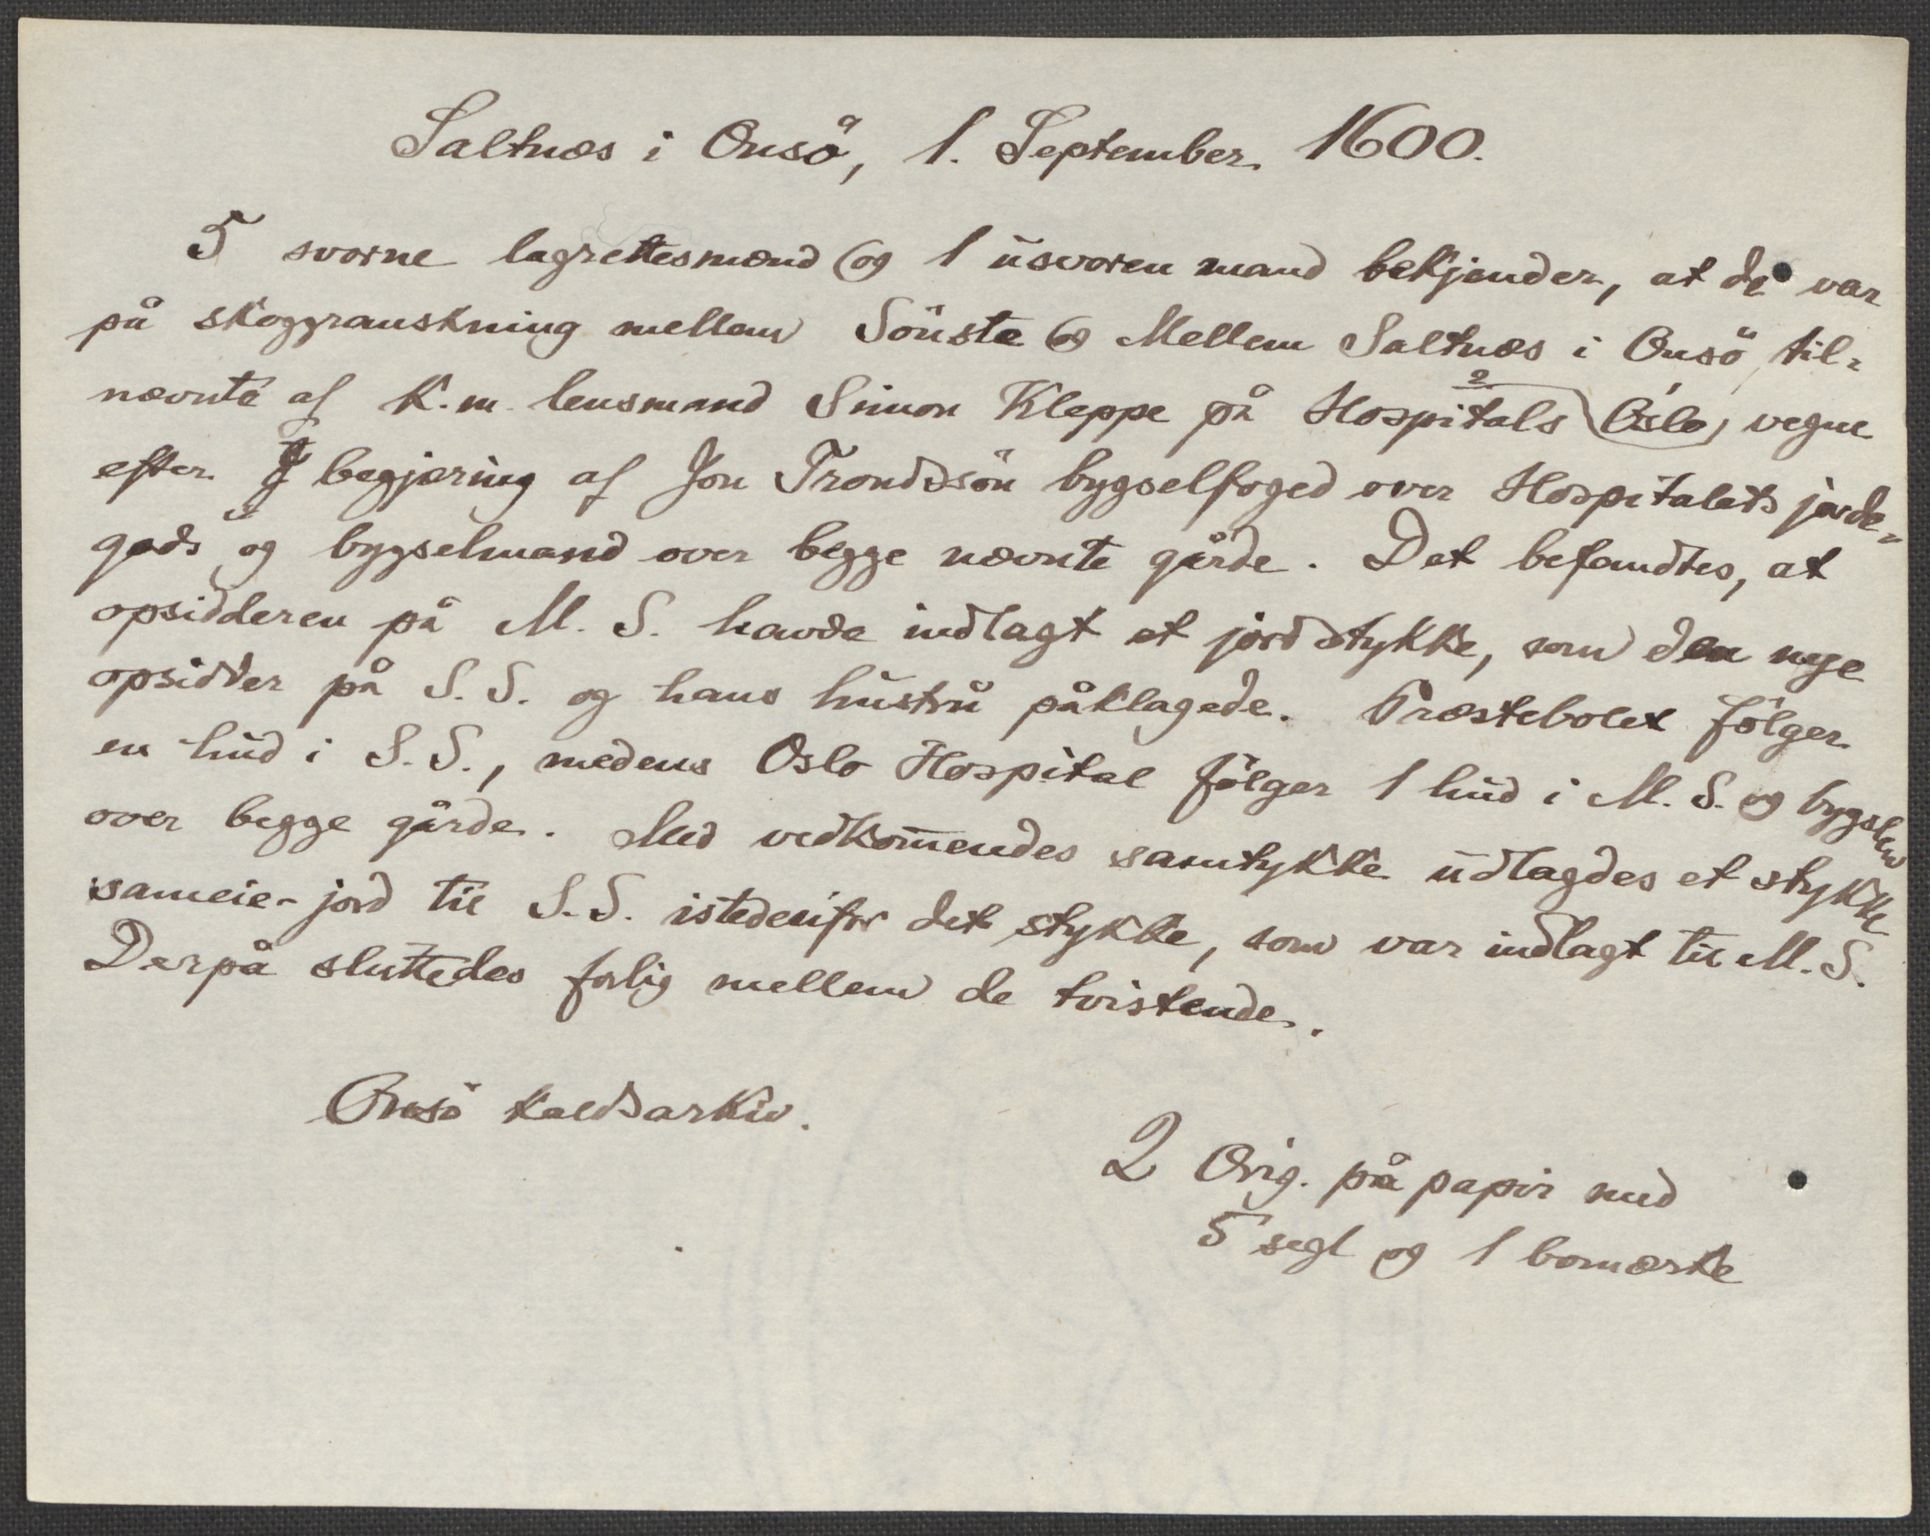 Saltnæs i Onsö, 1. September 1600.
5 svorne lagrettesmænd og 1 usvoren mand bekjender, at de var
på skoggranskning mellem Sönste og Mellem Saltnæs i Onsö, til=
nævnte af K. m. lensmand Simon Kleppe på Hospitals Oslo, vegne
efter begjæring af Jon Trondssön bygselfoged over Hospitalets jorde=
gods og bygselmand over begge nævnte gårde. Det befandtes, at
opsidderen på M. S. havde indlagt et jordstykke, som den nye
opsidder på S. S. og hans hustru påklagede. Præstebolet fölger
en hud i S. S., medens Oslo Hospital fölger 1 hud i M. S. og bygslen
over begge gårde. Med vedkom̄endes samtykke udlagdes et stykke
sameie-jord til S. S. istedenfor det stykke, som var indlagt til M. S.
Derpå sluttedes forlig mellem de tvistende.
Onsö kaldsarkiv.
2 Orig. på papir med
5 segl og 1 bomærke